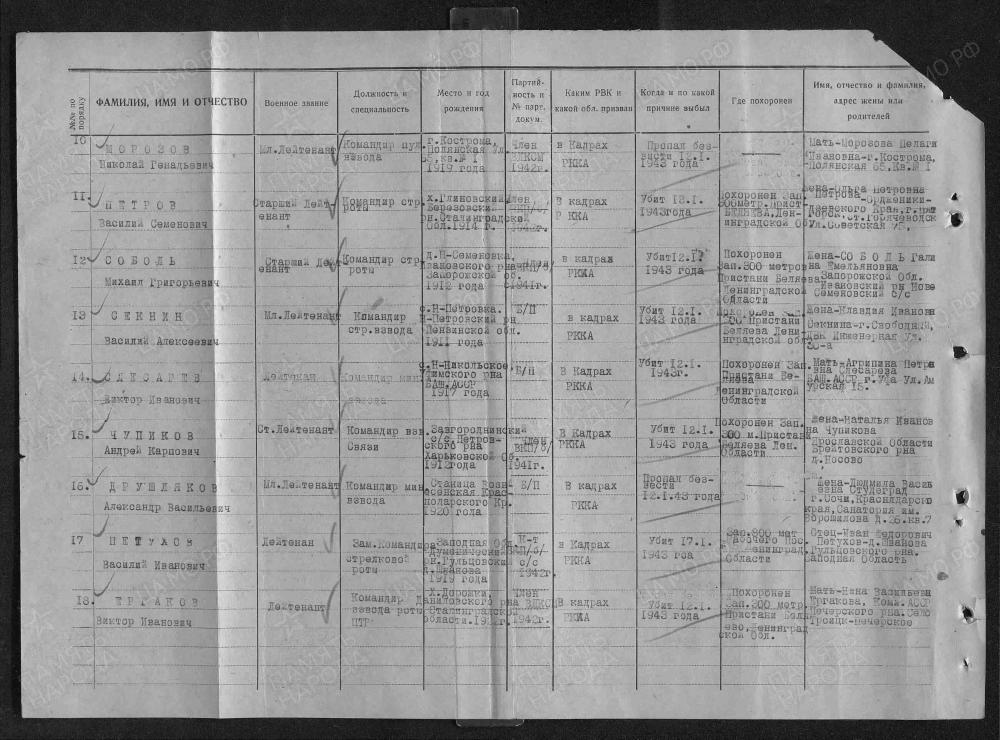 №№ по порядку
ФАМИЛИЯ, ИМЯ И ОТЧЕСТВО
Военное звание
Должность и специальность
Место и год рождения
Партийность и № парт. докум.
Каким РВК и какой обл. призван
Когда и по какой причине выбыл
Где похоронен
Имя, отчество и фамилия, адрес жены или родителей
10
МОРОЗОВ
Николай Генадьевич
Мл.Лейтенант
Командир пул
взвода
г.Кострома,
Полянская ул.
65,кв.№ 1
1919 года
Член
ВЛКСМ
1942г.
в Кадрах
РККА
Пропал без-
вести 12.I.
1943 года
Мать-Морозова Пелаги
Ивановна-г.Кострома,
Полянская 65,Кв.№ 1
11.
ПЕТРОВ
Василий Семенович
Старший Лейт-
енант
Командир стр.
роты
х.Глиновский
Березовский
рн.Сталинградской
обл.1914 г.
Член
ВКП/б/
1942г.
В кадрах
Р ККА
Убит 12.I.
1943года
Похоронен Зап.
300метр.Прист
БЕЛЯЕВА,Лен-
инградской Об
Жена-Ольга Петровна
Петрова-Орджиники-
Ул.Советская
12
СОБОЛЬ
Михаил Григорьевич
Старший Лейт
енант
Командир стр.
роты
д.Н-Семеновка,
Ивановского рна
Запорожской об.
1912 года
Член
ВКП/б/
с1941г.
в кадрах
РККА
Убит12.I.
1943 года
Похоронен
Зап.300 метров
Пристани Беляева
Ленинградской
Области
Жена-СОБОЛЬ Гали
на Емельяновна
Запорожской Обл.
Ивановский рн Нове
Семеновский с/с
13
СЕКНИН
Василий Алексеевич
Мл.Лейтенант
Командир
стр.взвода
с.Н-Петровка.
Н-Петровский рн
Пензинской обл.
1911 года
Б/П
в кадрах
РККА
Убит 12.I.
1943 года
Похоронен Зап.
300 Пристани
Беляева Лени-
нградской обл.
Жена-Клавдия Иванов
Секнина-г.Свободный,
Инженерная ул.
30-а
14.
СЛЕСАРЕВ
Виктор Иванович
Лейтенан
Командир мин
взвода
с.Н-Никольское
Уфимского рна
БАШ.АССР
1917 года
Б/П
в Кадрах
РККА
Убит 12.I.
1943г.
Похоронен Зап.
Пристани Бе-
Ленинградской
Области
Мать-Агрипина Петра
вна Слесарева
БАШ.АССР г.Уфа Ул.Ам
урская 15.
15.
ЧУПИКОВ
Андрей Карпович
Ст.Лейтенант
Командир взв.
Связи
Завгороднинский
с/с,Петров-
ского рна
Харьковской Об.
1912года
Член
ВКП/б/
1941г.
В Кадрах
РККА
Убит 12.I.
1943 года
Похоронен Зап.
300 м.Пристани
Беляева Лен.
Области
Жена-Наталья Иванов
на Чупикова
Ярославской Области
Брейтовского рна
д.Носово
16.
ДРУШЛЯКОВ
Александр Васильевич
Мл.Лейтенант
Командир мин
взвода
Станица Возн
есенская Крас-
нодарского Кр.
1920 года
Б/П
В кадрах
РККА
Пропал без-
вести
12.I.43 года
Жена-Людмила Васил
евна Студеград
г.Сочи,Краснадарско
края,Санатория им.
Ворошилова Д.26.кв.7
17
ПЕТУХОВ
Василий Иванович
Лейтенан
Зам.Командира
стрелковой
роты
Заподная Обл
Думенический
рн.Гульцовский
д.Шванова
1919 года
К-т
ВКП/б/
с/с
1942г.
в Кадрах
РККА
Убит 17.I.
1943 гоа
Зап.800 мет
Рабочего пос.
Ленинград.
Области
Отец-Иван Федорович
Петухов-д.Шванова
Гульцовского рна.
Заподная Область
18.
ЕРГАКОВ
Виктор Иванович
Лейтенант
Командир
взвода роты
ПТР
Х.Дорожки,
Даниловского рна
Сталинградской
области.19 г.
Член
ВЛКСМ
1942г.
В кадрах
РККА
Убит 12.I.
1943 года
Похоронен
Зап.300 метр.
Пристани Беля
ево,Ленинград
ской Обл.
Мать-Нина Васильевн
Ергакова, Коми.АССР
Печерского рна.село
Троицк-Печерское
ПАМЯТЬ НАРОДА
ПАМО.РФ